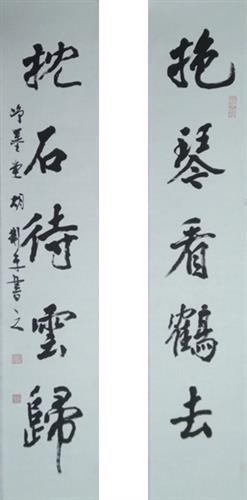 抱琴看鶴去
枕石待雲歸
書之